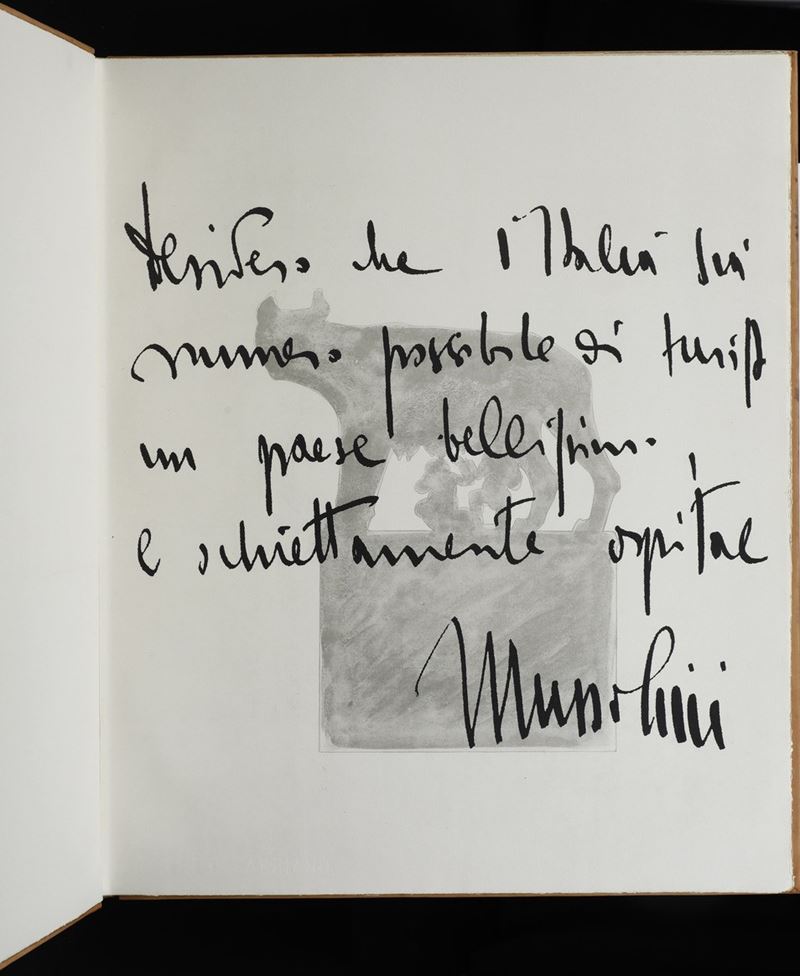 Desidero che l'Italia sia
numero possibile di turisti
un paese bellissimo
e schiettamente ospitale
Mussolini